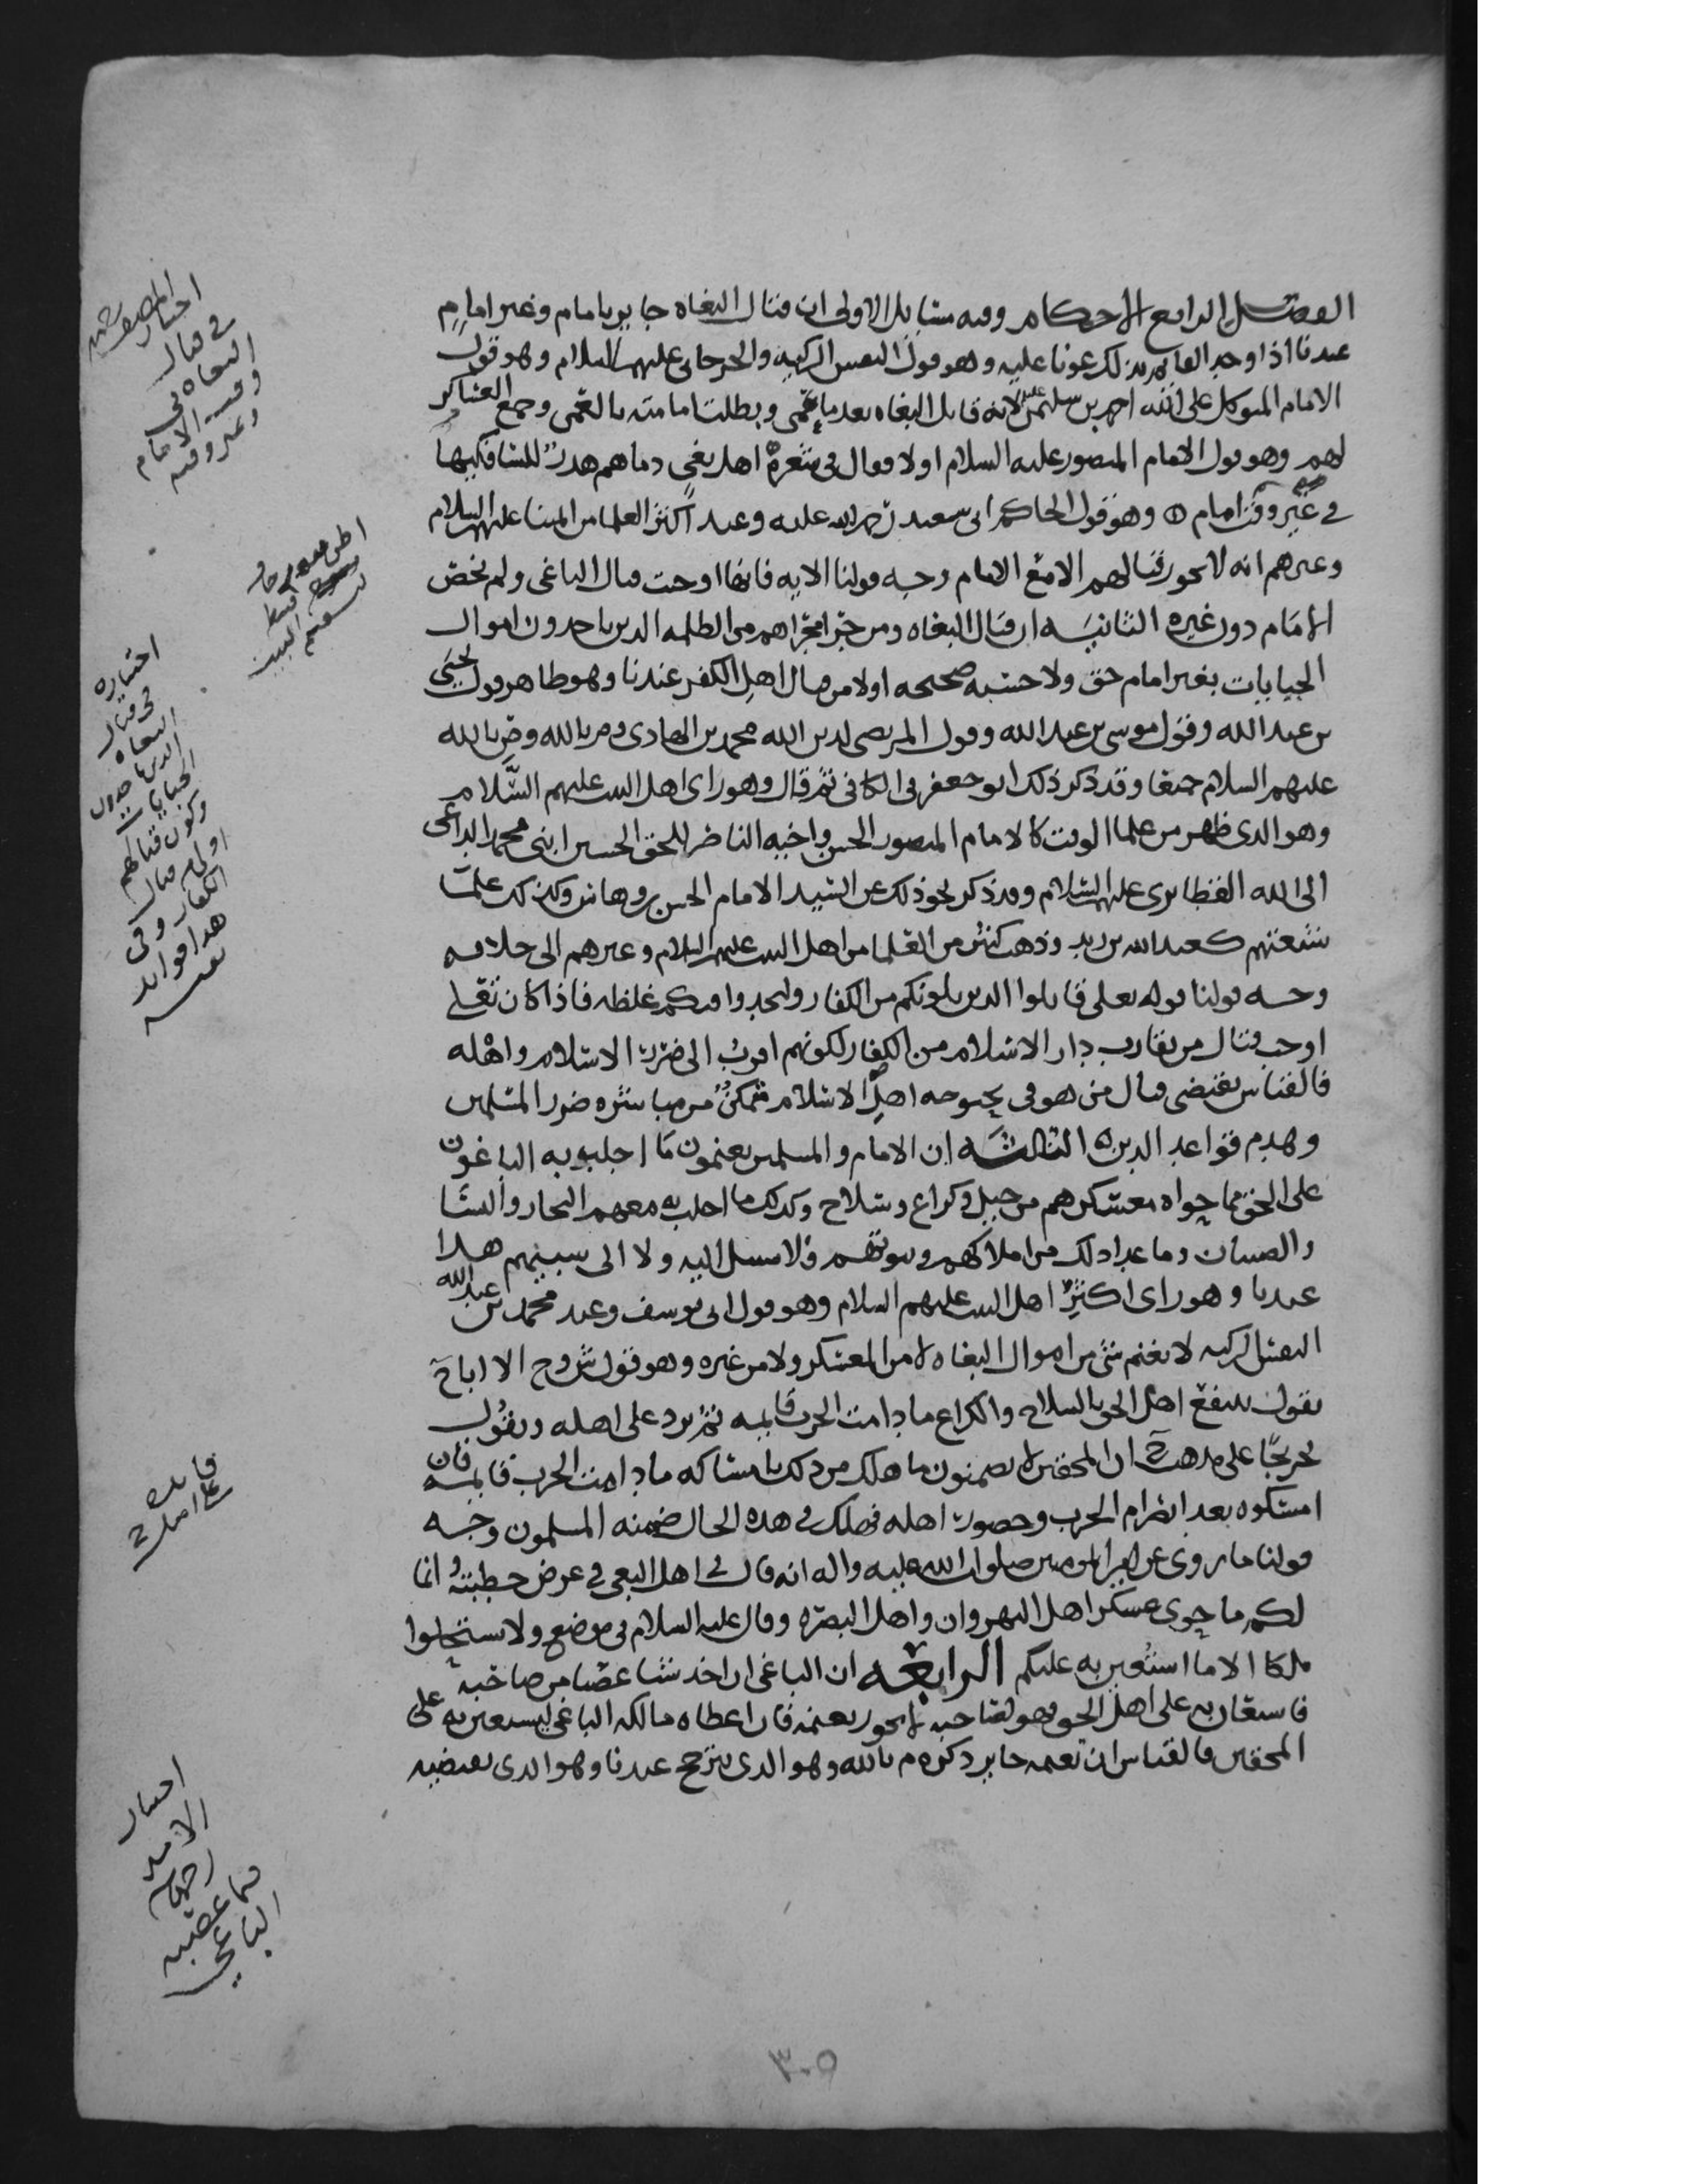 الفصل الرابع الاحكام وفيه مسايل الاولى ان قتال البغاه جايز بامام وغير امام
عندنا اذا وجد القايم بذلك عونا عليه وهو قول النفس الزكيه والجرجاني عليهما السلام وهو قول
الامام المتوكل على الله احمد بن سليمن لانه قاتل البغاه بعد ما عمى وبطلت امامته بالعمى وجمع العساكر
لهم وهو قول الامام المنصور عليه السلام اولا فقال في شعره اهل بغي دماهم هدر للسافكيها
في غير وقت امام وهو قول الحاكم ابي سعيد رحمه الله عليه وعند اكثر العلما من ايمتنا عليهم السلام
وغيرهم انه لا يجوز قتالهم الا مع الامام وجه قولنا الايه فانها اوجبت قتال الباغي ولم تخص
الامام دون غيره الثانيه ان قتال البغاه ومن جرا مجراهم من الظلمه الذين ياخذون اموال
الجبايات بغير امام حق ولا حسبه صحيحه اولا من قتال اهل الكفر عندنا وهو ظاهر قول يحيى
بن عبد الله وقول موسى بن عبد الله وقول المرتضى لدين الله محمد بن الهادي وم بالله وص بالله
عليهم السلام جميعا وقد ذكر ذلك ابو جعفر في الكافي ثم قال وهو راى اهل البيت عليهم السلام
وهو الذي ظهر من علما الوقت كالامام المنصور الحسن واخيه الناصر للحق الحسين ابني محمد الداعي
الى الله القطابري عليهم السلام وقد ذكر نحو ذلك عن السيد الامام الحسن بن وهاس وكذلك علما
شيعتهم كعبد الله بن زيد وذهب كثير من العلما من اهل البيت عليهم السلام وغيرهم الى خلافه
وجه قولنا قوله تعلى قاتلوا الذين يلونكم من الكفار وليجدوا فيكم غلظه فاذا كان تعلى
اوجب قتال من يقارب دار الاسلام من الكفار لكونهم اقرب الى ضرر الاسلام واهله
فالقياس يقتضي قتال من هو في بحبوحه اهل الاسلام متمكن من مباشره ضرر المسلمين
وهدم قواعد الدين الثالثه ان الامام والمسلمين يغنمون ما اجلب به الباغون
على الحق مما حواه معسكرهم من خيل وكراع وسلاح وكذلك ما اجلب به معهم التجار والنسا
والصبيان وما عدا ذلك من املاكهم وبيوتهم فلا سبيل اليه ولا الى سبيهم هذا
عندنا وهو راى اكثر اهل البيت عليهم السلام وهو قول ابي يوسف وعند محمد بن عبد الله
النفس الزكيه لا يغنم شي من اموال البغاه لا من المعسكر ولا من غيره وهو قول ش وح الا ان اباح
يقول ينتفع اهل الحق بالسلاح والكراع ما دامت الحرب قايمه ثم يرد على اهله ونقول
تخريجا على مذهب ح ان المحقين لا يضمنون ما هلك من ذلك بامساكه ما دامت الحرب قايمه فان
امسكوه بعد انصرام الحرب وحضور اهله فهلك في هذه الحال ضمنه المسلمون وجه
قولنا ما روي عن امير المومنين صلوات الله عليه واله انه قال في اهل البغي في عرض خطبته انما
لكم ما حوى عسكر اهل النهروان واهل البصره وقال عليه السلام في موضع ولا تستحلوا
ملكا الا ما استعين به عليكم الرابعه ان الباغي ان اخذ شيا غصبا من صاحبه
فاستعان به على اهل الحق فهو لصاحبه لا يجوز يغنمه فان اعطاه مالكه الباغي ليستعين به على
المحقين فالقياس ان تغنمه جايز ذكره م بالله وهو الذي يترجح عندنا وهو الذي يقتضيه
في قتال
البغاه في
وقت الامام
وغير وقته
اختياره
في قتال
البغاه
الذين ياخذون
الجبايات
وكون قتالهم
اولى من قتال
الكفار وفي
هذا فوايد
نفيسه
اختيار
الامير
رحمه الله
فيما غصبه
الباغي
٣٠٥